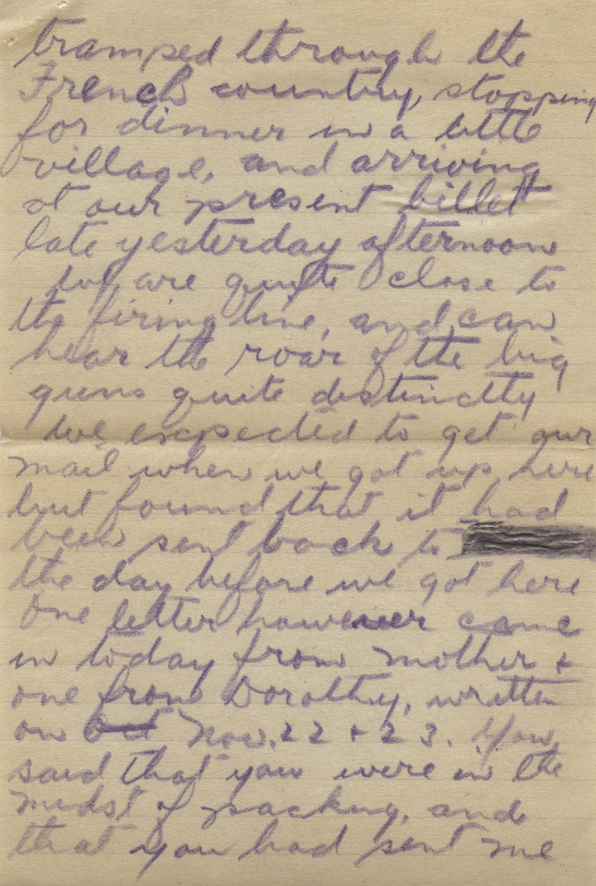 tramped through the
French country, stopping
for dinner in a little
village, and arriving
at our present billet
late yesterday afternoon
We are quite close to
the firing line, and can
hear the roar of the big
guns quite distinctly
We expected to get our
mail when we got up here
but found that it had
been sent back to
the day before we got here
One letter however came
in today from Mother +
one from Dorothy, written
on Oct Nov. 22 + 23. You
said that you were in the
midst of packing, and
that you had sent me